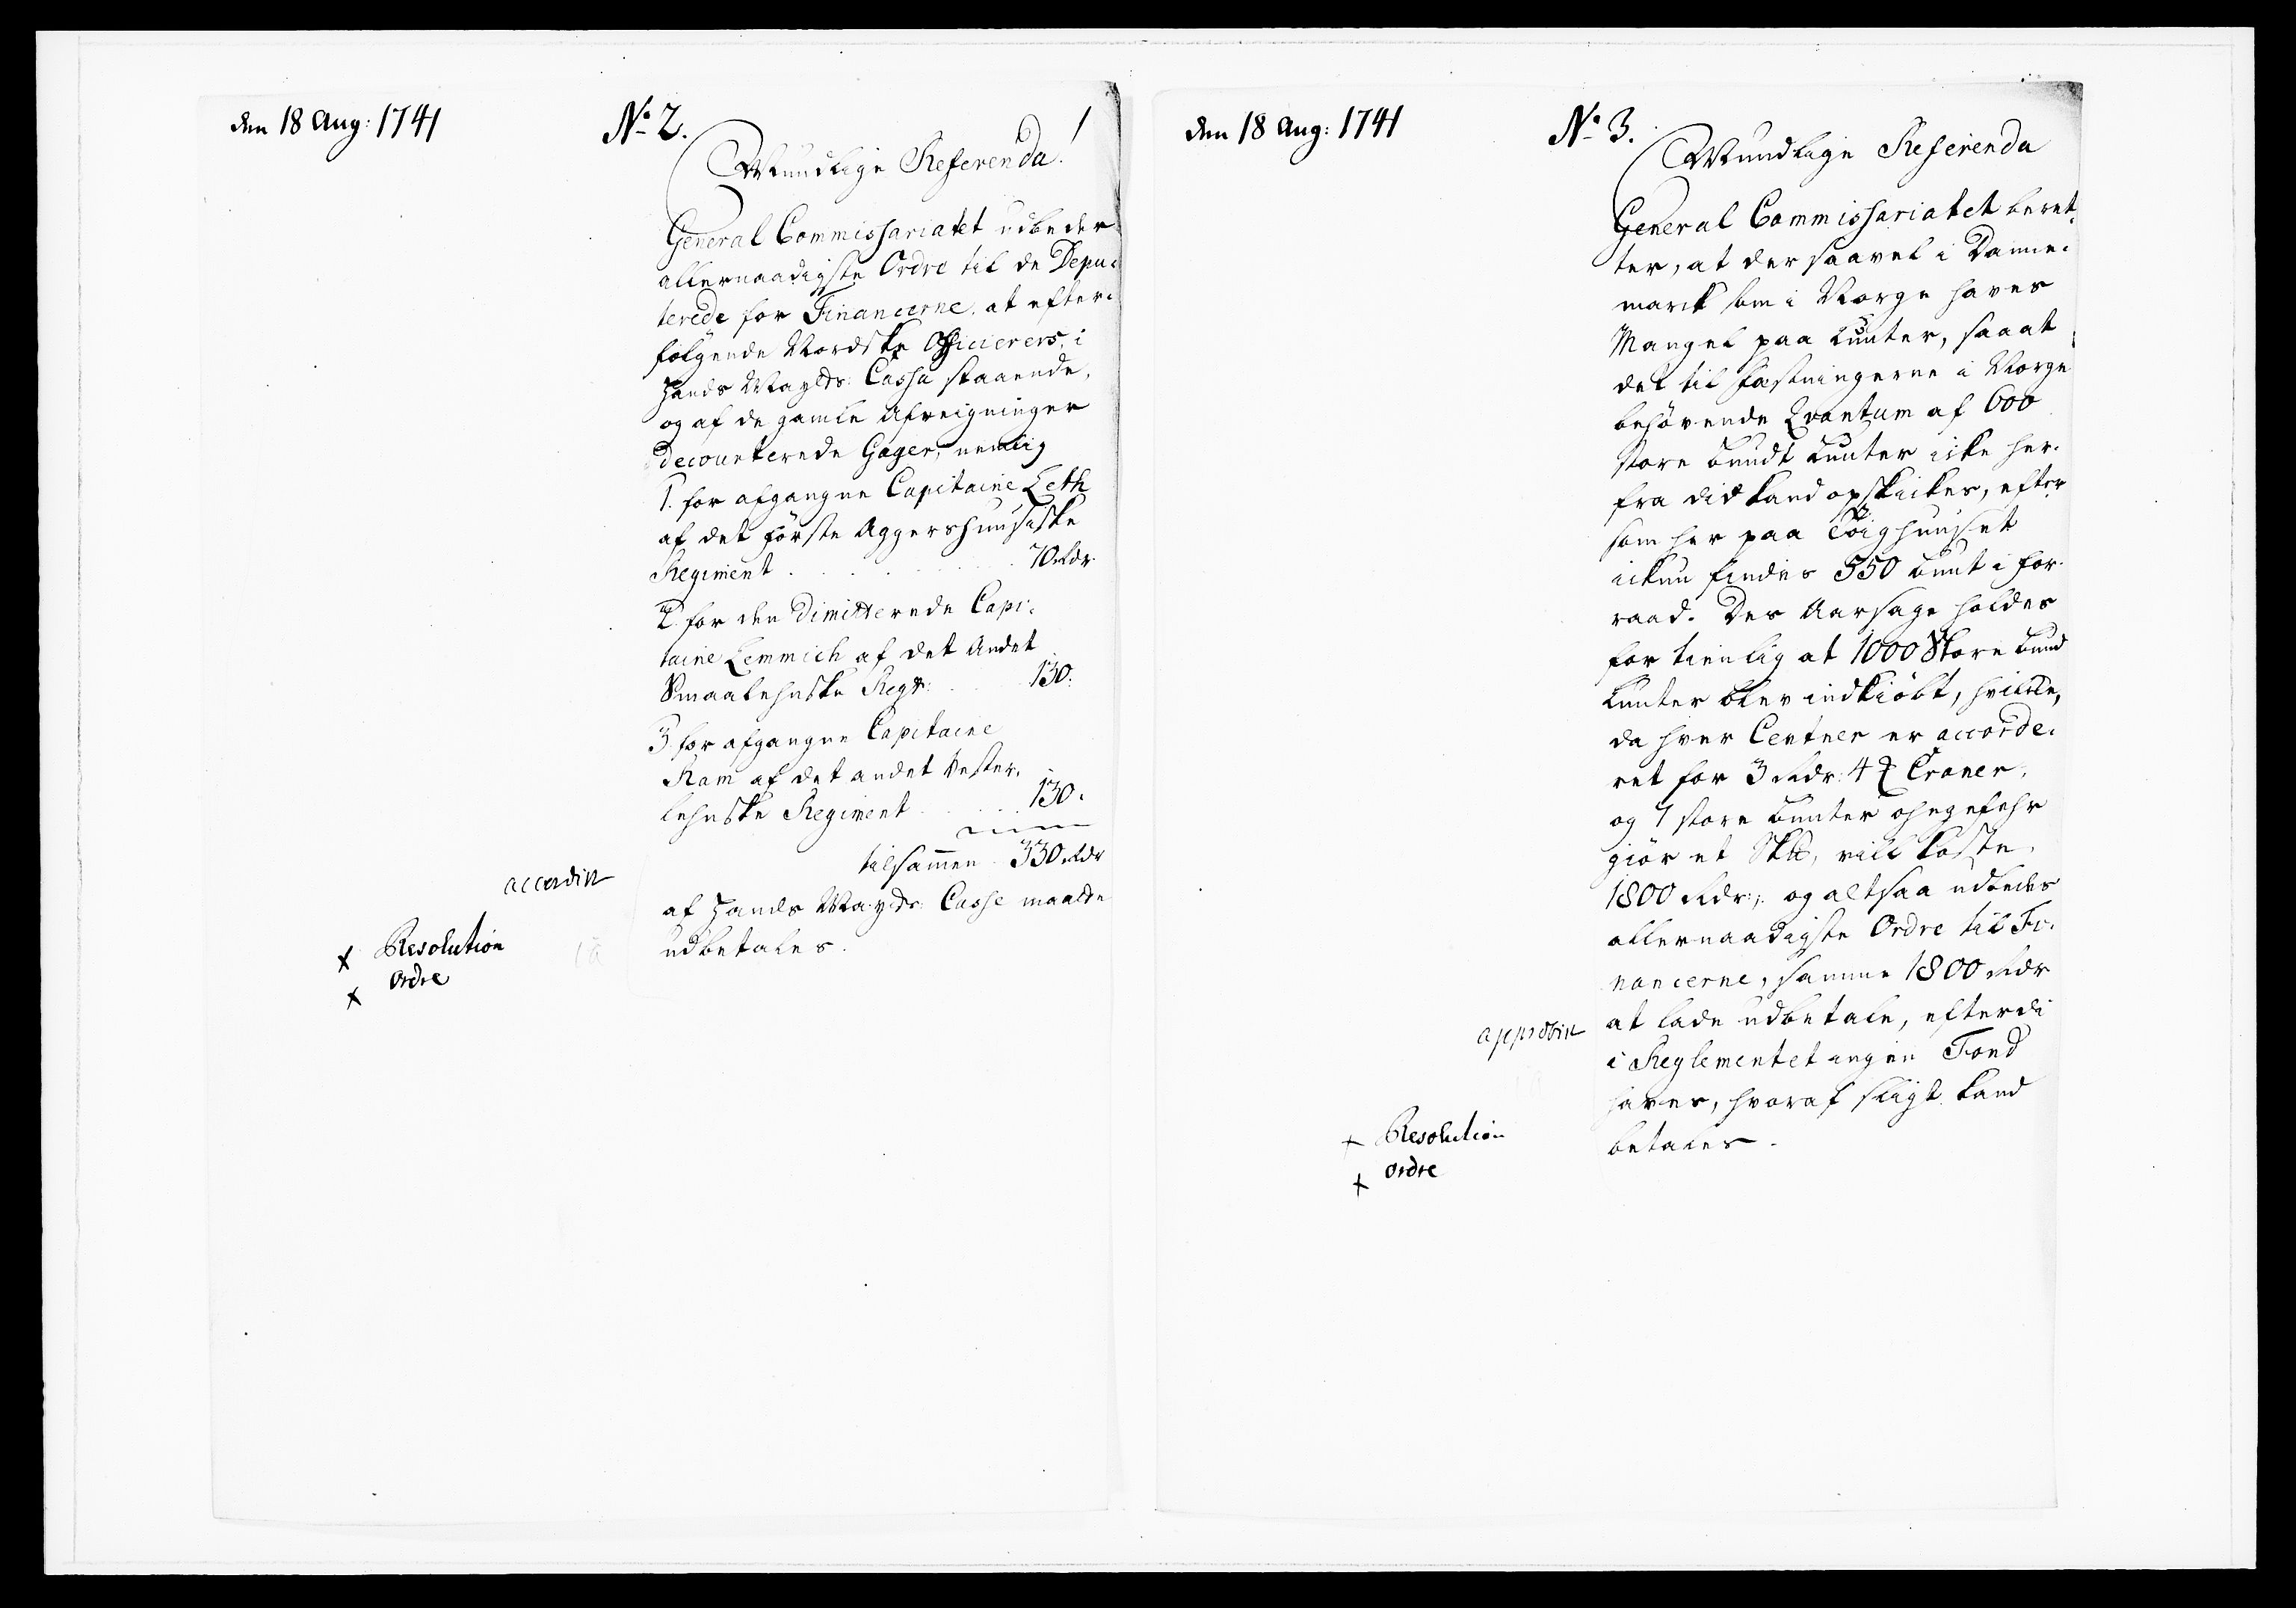 den 18 Aug: 1741
No 2.
Mundlige Referenda!
General Commissariatet udbeder
allernaadigste Ordre til de Depu-
terede for Financerne, at efter-
følgende Nordske Officierers, i
Hands Mayts: Cassa staaende,
og af de gamle Afreigninger
decourterede Gager, nemlig
1. for afgangne Capitaine Leth
af det første Aggershuusiske
Regiment . . . . . 70 Rdr
2. for den Dimitterede Capi-
taine Lemmich af det Andet
Smaalehnske Regt: . . 130:
3. for afgangne Capitaine
Ram af det andet Vester-
lehnske Regiment . . . 130.
tilsammen 330 Rdr
af Hands Mayts: Casse maatte
udbetales.
accordirt
x Resolution
x Ordre
den 18 Aug: 1741
No 3.
Mundlige Referenda
General Commissariatet beret-
ter, at der saavel i Danne-
marck som i Norge haves
Mangel paa Lunter, saa at
det til Fæstningerne i Norge
behøvende Qvantum af 600
store bundt Lunter icke her-
fra did kand opskickes, efter
som her paa Tøighuuset
ickun findes 350 bunt i for-
raad. Des Aarsage holdes
for tienlig at 1000 Store bund
Lunter blev indkiøbt, hvilcke,
da hver Centner er accorde-
ret for 3 Rdr: 4 ß Croner,
og 7 store bunter ohngefehr
giør et Sk℔, vill koste
1800 Rdr:, og altsaa udbedes
allernaadigste Ordre til Fi-
nancerne, samme 1800 Rdr
at lade udbetale, efterdi
i Reglementet ingen Fond
haves, hvoraf sligt kand
betales.
approbirt
x Resolution
x Ordre